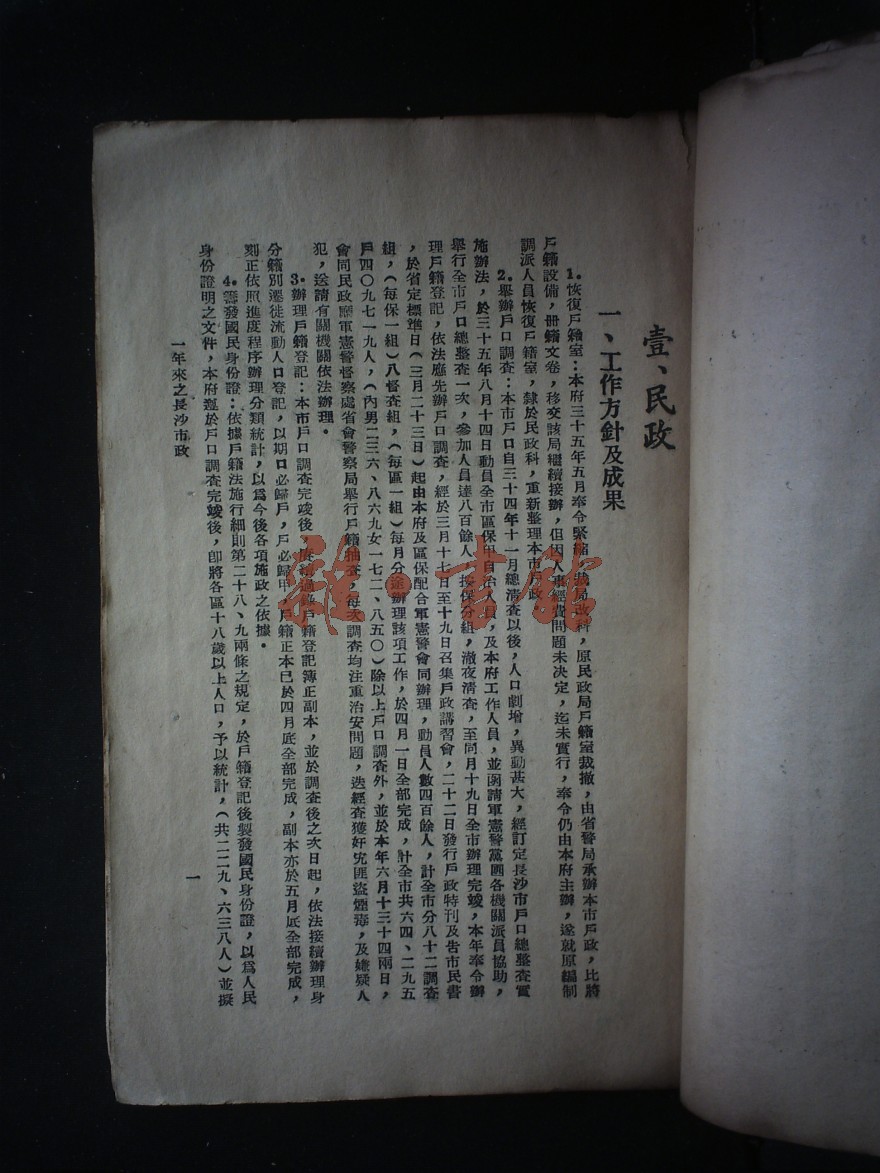 壹、民政
一、工作方針及成果
1.恢復戶籍室：本府三十五年五月奉令緊縮，裁局改科，原民政局戶籍室裁撤，由省警局承辦本市戶政，比將
戶籍設備，冊籍文卷，移交該局繼續接辦，但因人事經費問題未決定，迄未實行，奉令仍由本府主辦，遂就原編制
調派人員恢復戶籍室，隸於民政科，重新整理本市戶政。
2.舉辦戶口調查：本市戶口自三十四年十一月總清查以後，人口劇增，異動甚大，經訂定長沙市戶口總整查實
施辦法，於三十五年八月十四日動員全市區保甲自治人員，及本府工作人員，並函請軍憲警黨團各機關派員協助，
舉行全市戶口總整查一次，參加人員達八百餘人，按保分組，澈夜清查，至同月十九日全市辦理完竣，本年奉令辦
理戶籍登記，依法應先辦戶口調查，經於三月十七日至十九日召集戶政講習會，二十二日發行戶政特刊及告市民書
，於省定標準日（三月二十三日）起由本府及區保配合軍憲警會同辦理，動員人數四百餘人，計全市分八十二調查
組，（每保一組）八督查組，（每區一組）每月分途辦理該項工作，於四月一日全部完成，計全市共六四、二九五
戶四〇九七一九人，（內男二三六、八六九女一七二、八五〇）除以上戶口調查外，並於本年六月十三十四兩日，
會同民政廳軍憲警督察處省會警察局舉行戶籍抽查，每次調查均注重治安問題，迭經查獲奸宄匪盜煙毒，及嫌疑人
犯，送請有關機關依法辦理。
3.辦理戶籍登記：本市戶口調查完竣後，過錄戶籍登記簿正副本，並於調查後之次日起，依法接續辦理身
分籍別遷徙流動人口登記，以期口必歸戶，戶必歸甲，戶籍正本已於四月底全部完成，副本亦於五月底全部完成，
刻正依照進度程序辦理分類統計，以爲今後各項施政之依據。
4.籌發國民身份證：依據戶籍法施行細則第二十八、九兩條之規定，於戶籍登記後製發國民身份證，以爲人民
身份證明之文件，本府遵於戶口調查完竣後，卽將各區十八歲以上人口，予以統計，（共二二九、六三八人）並擬
一年來之長沙市政
一
雜·書館